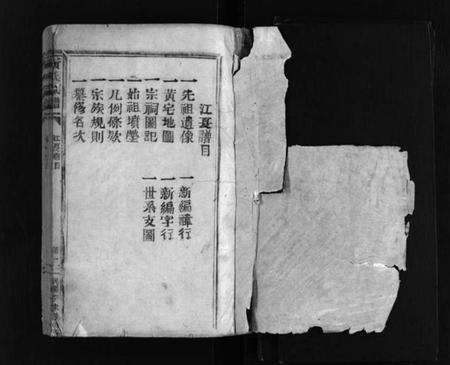 江夏譜目
一先祖遺像
一黃宅地圖
一宗祠圖記
一始祖墳塋
一凡例條款
一宗族規則
一纂修名次
一新編諱行
一新編字行
一世系支圖
江夏譜目